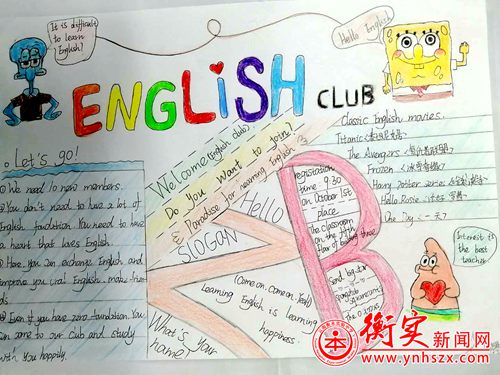 It is difficult
to learn
English!
Hello English!
ENGLiSH
CLUB
Let's go!
We need 10 new members.
You don't need to have a lot of
English foundation. You need to have
a heart that loves English.
Here, You can exchange English, and
improve you oral English, make frien
ds.
Even if you have zero foundation. You
can come to our Club and study
with you happily.
Welcome (English club)
Do You Want to join?
Paradise for learning English
Hello
SLOGAN
(Come on. Come on. Yeah!)
Learning English is learning
happiness
What's Your
name?
Registration
time 9:30
on October 1st
place
The classroom
on the
floor of
Send
Classic English movies.
Titanic
The Avengers
Frozen《冰雪奇缘》
Harry Potter series
Hello Rosie
One Day《一天》
Interest is the
best
teacher
衡实新闻网
www.ynhszx.com